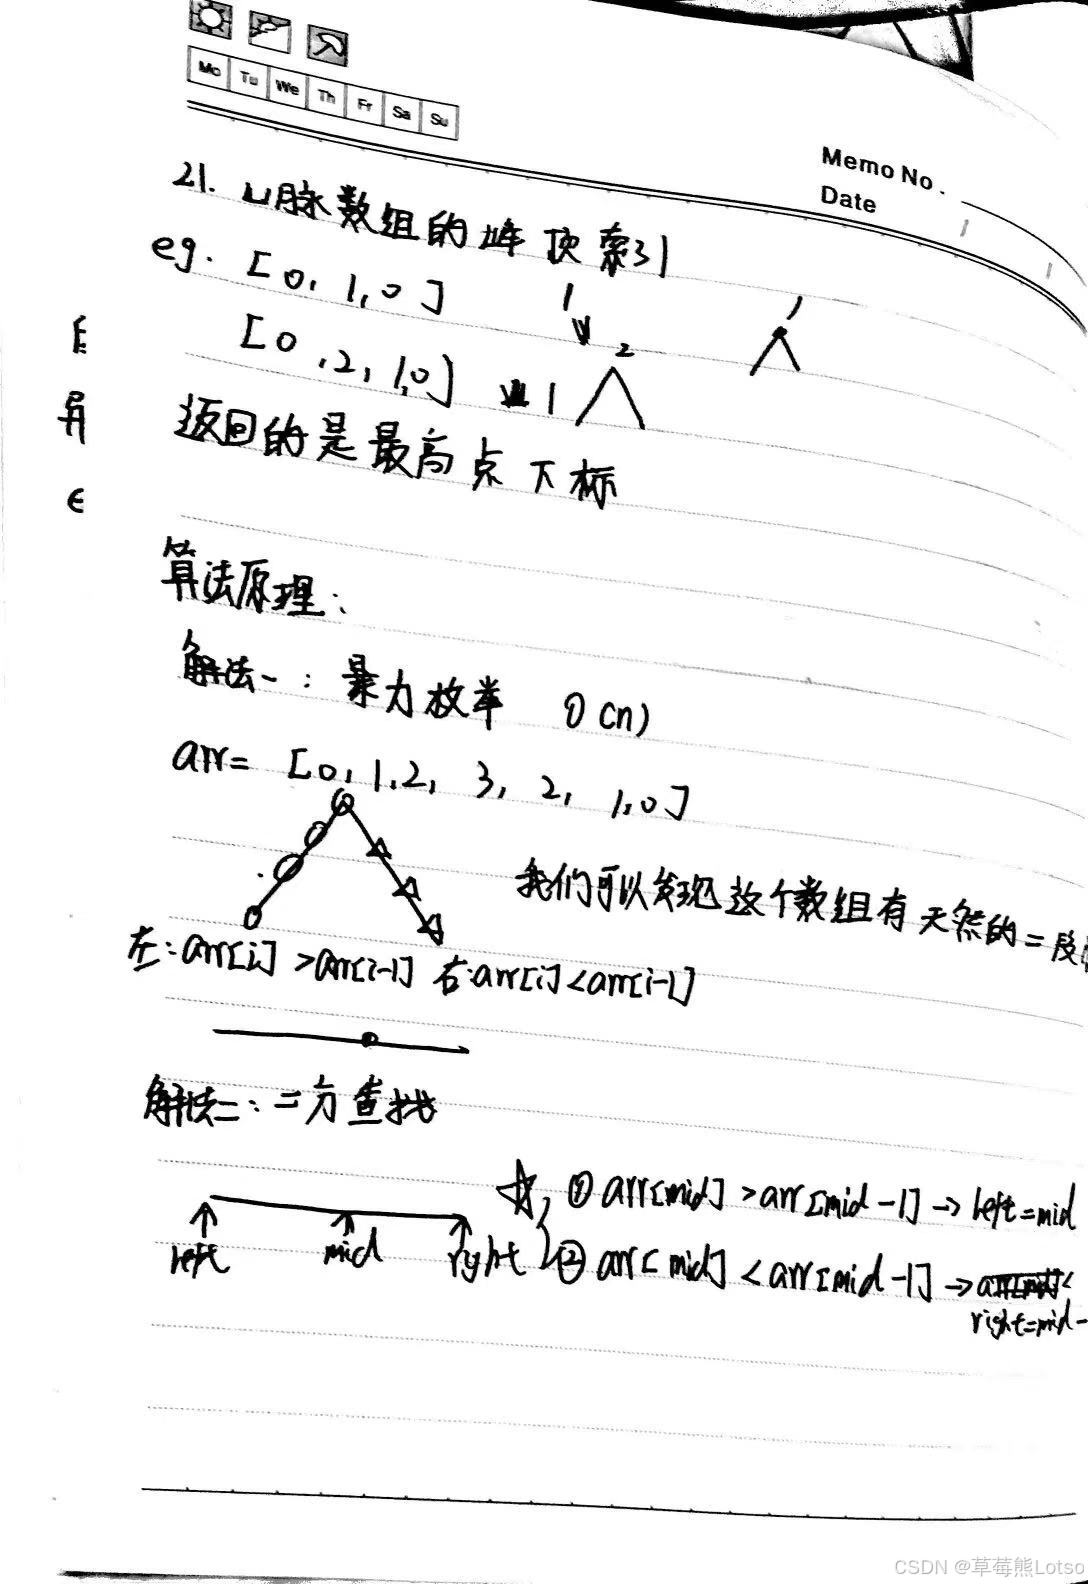 Mo Tu We Th Fr Sa Su
Memo No.
Date
21. 山脉数组的峰顶索引
eg. [0, 1, 0] 1 1
[0, 2, 1, 0] 1 2
返回的是最高点下标
算法原理:
解法一: 暴力枚举 O(n)
arr= [0, 1, 2, 3, 2, 1, 0]
我们可以发现这个数组有天然的二段
左: arr[i] > arr[i-1] 右: arr[i] < arr[i-1]
解法二: 二分查找
left mid right
① arr[mid] > arr[mid-1] → left=mid
② arr[mid] < arr[mid-1] →
right=mid-
CSDN @草莓熊Lotso